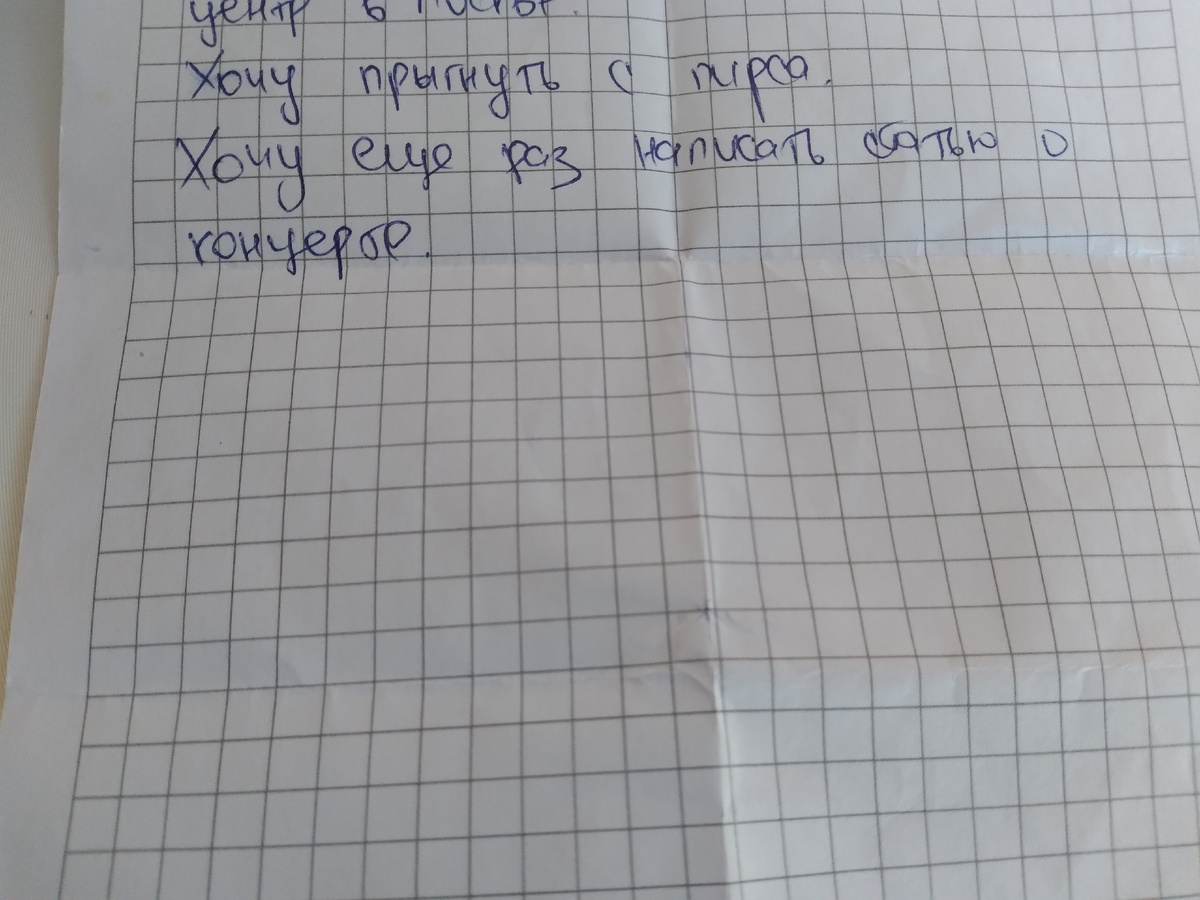 центр в
Хочу прыгнуть с пирса.
Хочу еще раз написать статью о
концерте.